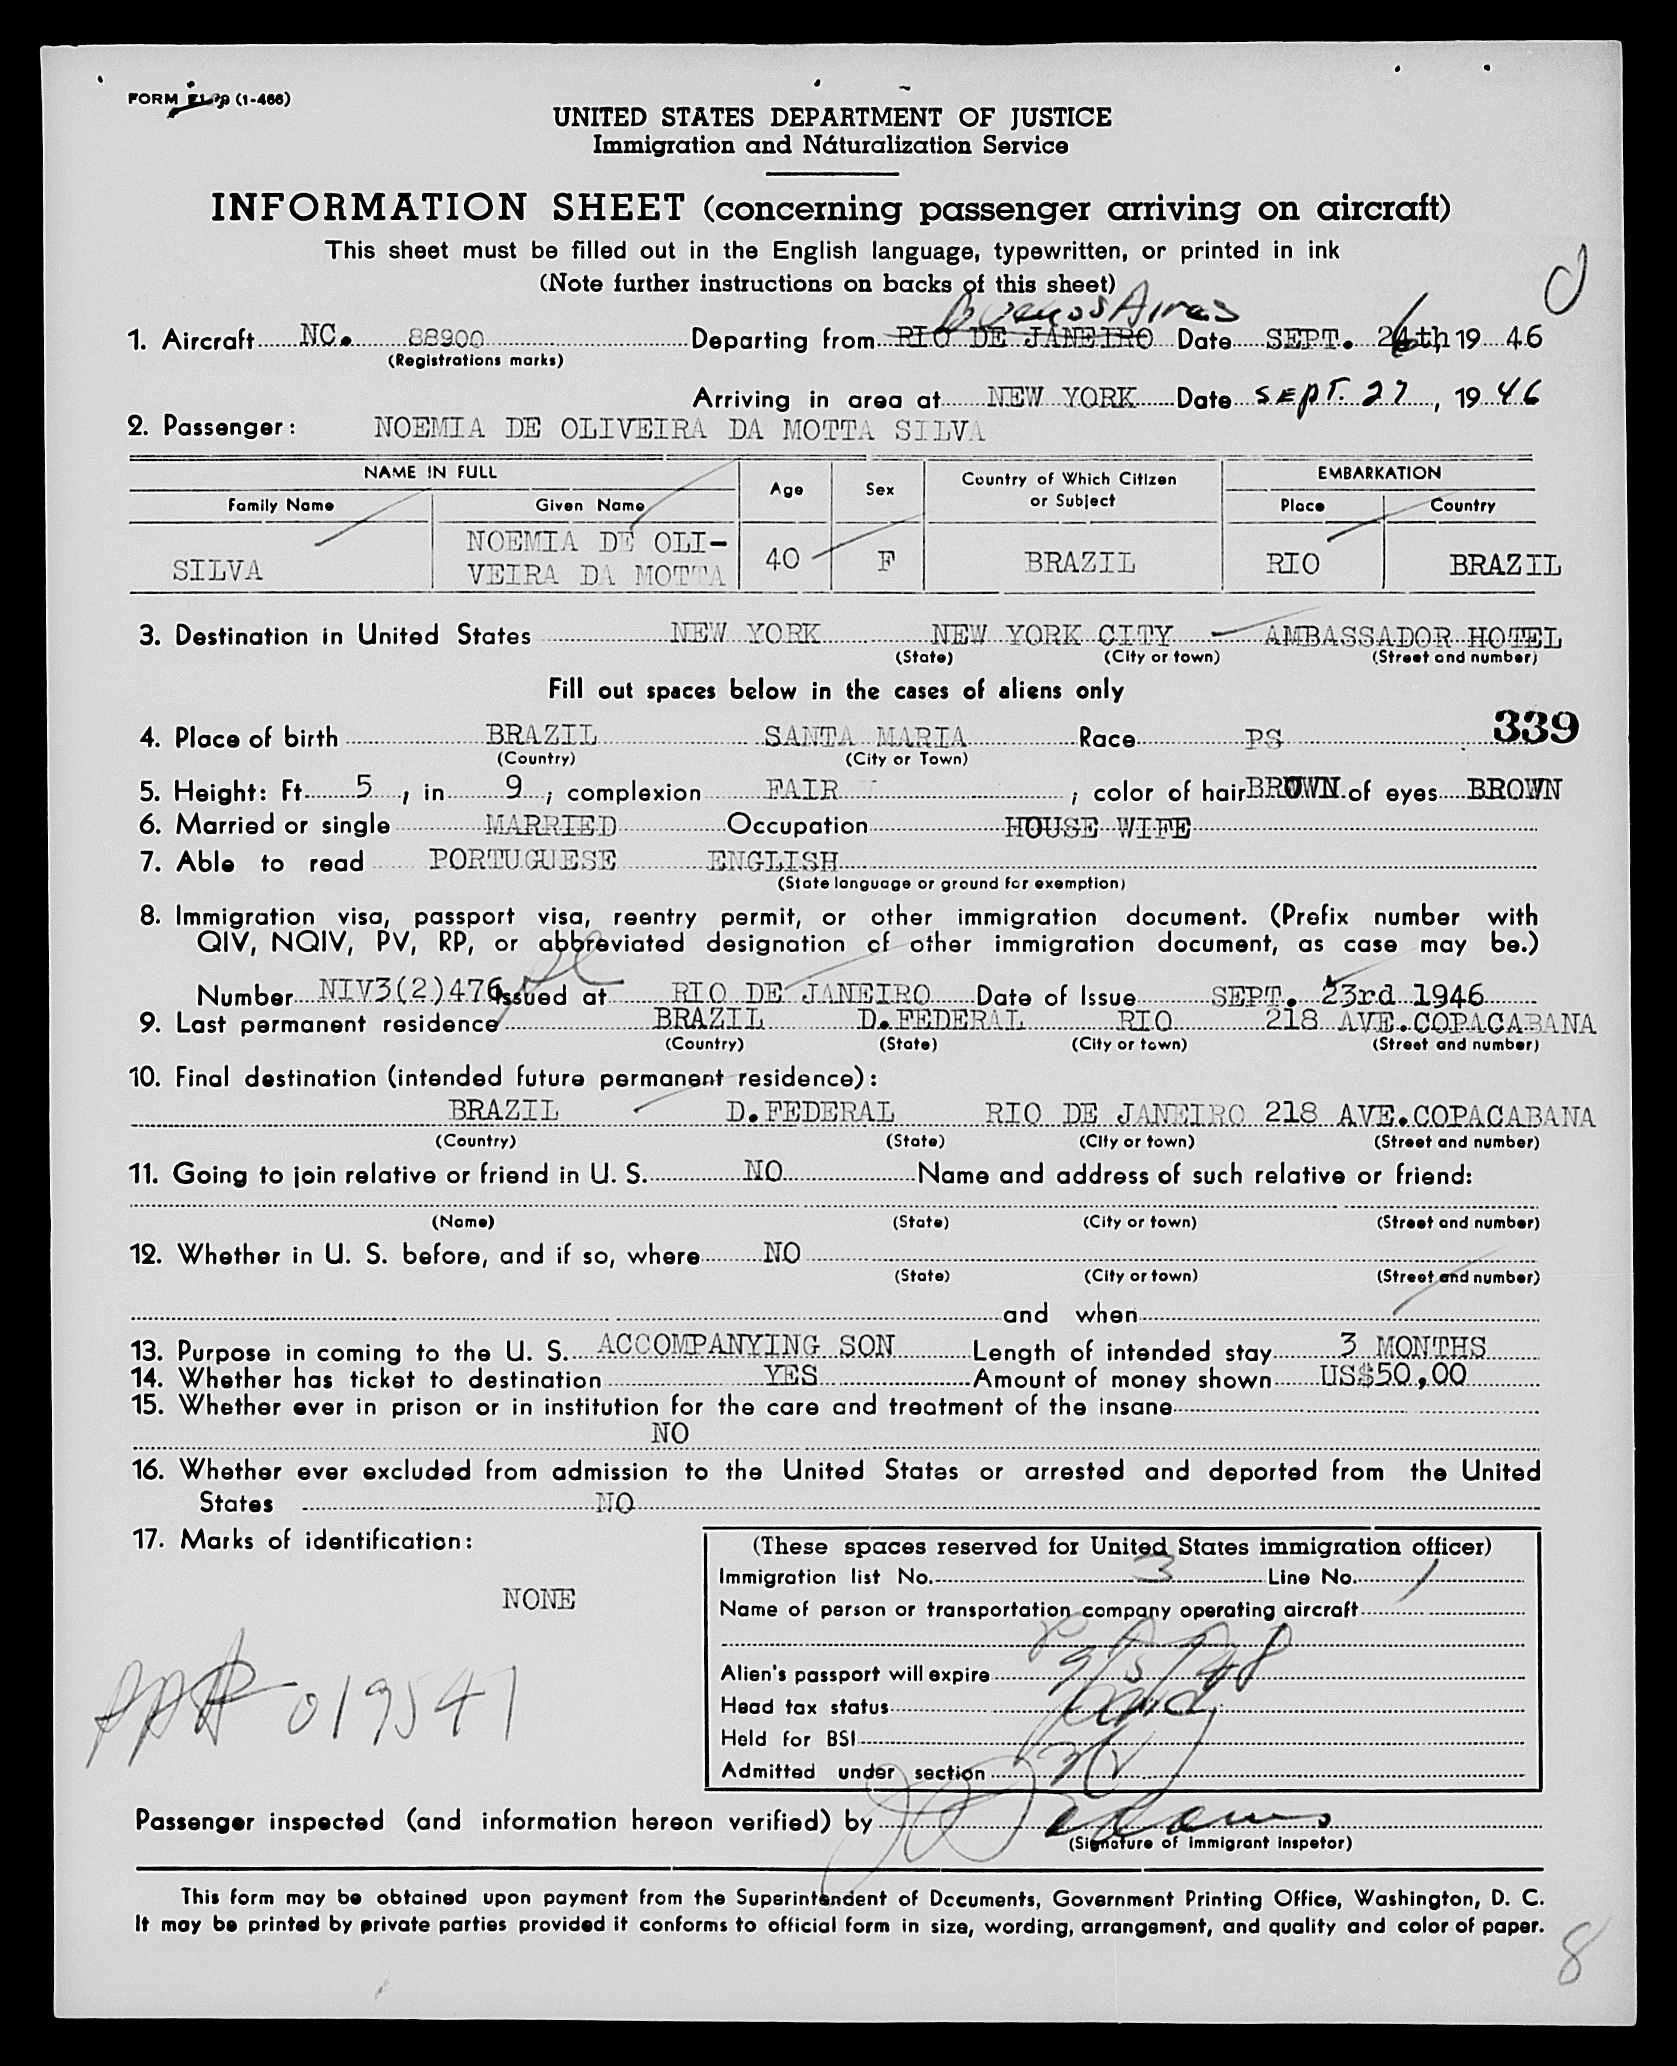 FORM (1-466)
UNITED STATES DEPARTMENT OF JUSTICE
Immigration and Naturalization Service
INFORMATION SHEET (concerning passenger arriving on aircraft)
This sheet must be filled out in the English language, typewritten, or printed in ink
(Note further instructions on backs of this sheet)
Buenos Aires
1. Aircraft NC. 88900 Departing from RIO DE JANEIRO Date SEPT. 26th 19 46
(Registrations marks)
Arriving in area at NEW YORK Date SEPT. 27, 19 46
2. Passenger: NOEMIA DE OLIVEIRA DA MOTTA SILVA
NAME IN FULL Age Sex Country of Which Citizen or Subject EMBARKATION
Family Name Given Name Place Country
SILVA NOEMIA DE OLI-VEIRA DA MOTTA 40 F BRAZIL RIO BRAZIL
3. Destination in United States NEW YORK NEW YORK CITY AMBASSADOR HOTEL
(State) (City or town) (Street and number)
Fill out spaces below in the cases of aliens only
339
4. Place of birth BRAZIL SANTA MARIA Race PS
(Country) (City or Town)
5. Height: Ft. 5, in 9; complexion FAIR; color of hair BROWN of eyes BROWN
6. Married or single MARRIED Occupation HOUSE WIFE
7. Able to read PORTUGUESE ENGLISH
(State language or ground for exemption)
8. Immigration visa, passport visa, reentry permit, or other immigration document. (Prefix number with
QIV, NQIV, PV, RP, or abbreviated designation of other immigration document, as case may be.)
Number NIV3(2)476 Issued at RIO DE JANEIRO Date of Issue SEPT. 23rd 1946
9. Last permanent residence BRAZIL D.FEDERAL RIO 218 AVE.COPACABANA
(Country) (State) (City or town) (Street and number)
10. Final destination (intended future permanent residence):
BRAZIL D.FEDERAL RIO DE JANEIRO 218 AVE.COPACABANA
(Country) (State) (City or town) (Street and number)
11. Going to join relative or friend in U. S. NO Name and address of such relative or friend:
(Name) (State) (City or town) (Street and number)
12. Whether in U. S. before, and if so, where NO
(State) (City or town) (Street and number)
and when
13. Purpose in coming to the U. S. ACCOMPANYING SON Length of intended stay 3 MONTHS
14. Whether has ticket to destination YES Amount of money shown US$50,00
15. Whether ever in prison or in institution for the care and treatment of the insane
NO
16. Whether ever excluded from admission to the United States or arrested and deported from the United
States NO
17. Marks of identification:
NONE
019541
(These spaces reserved for United States immigration officer)
Immigration list No. 3 Line No. 1
Name of person or transportation company operating aircraft
Alien's passport will expire
Head tax status
Held for BSI
Admitted under section
Passenger inspected (and information hereon verified) by
(Signature of Immigrant Inspetor)
This form may be obtained upon payment from the Superintendent of Documents, Government Printing Office, Washington, D. C.
It may be printed by private parties provided it conforms to official form in size, wording, arrangement, and quality and color of paper.
8